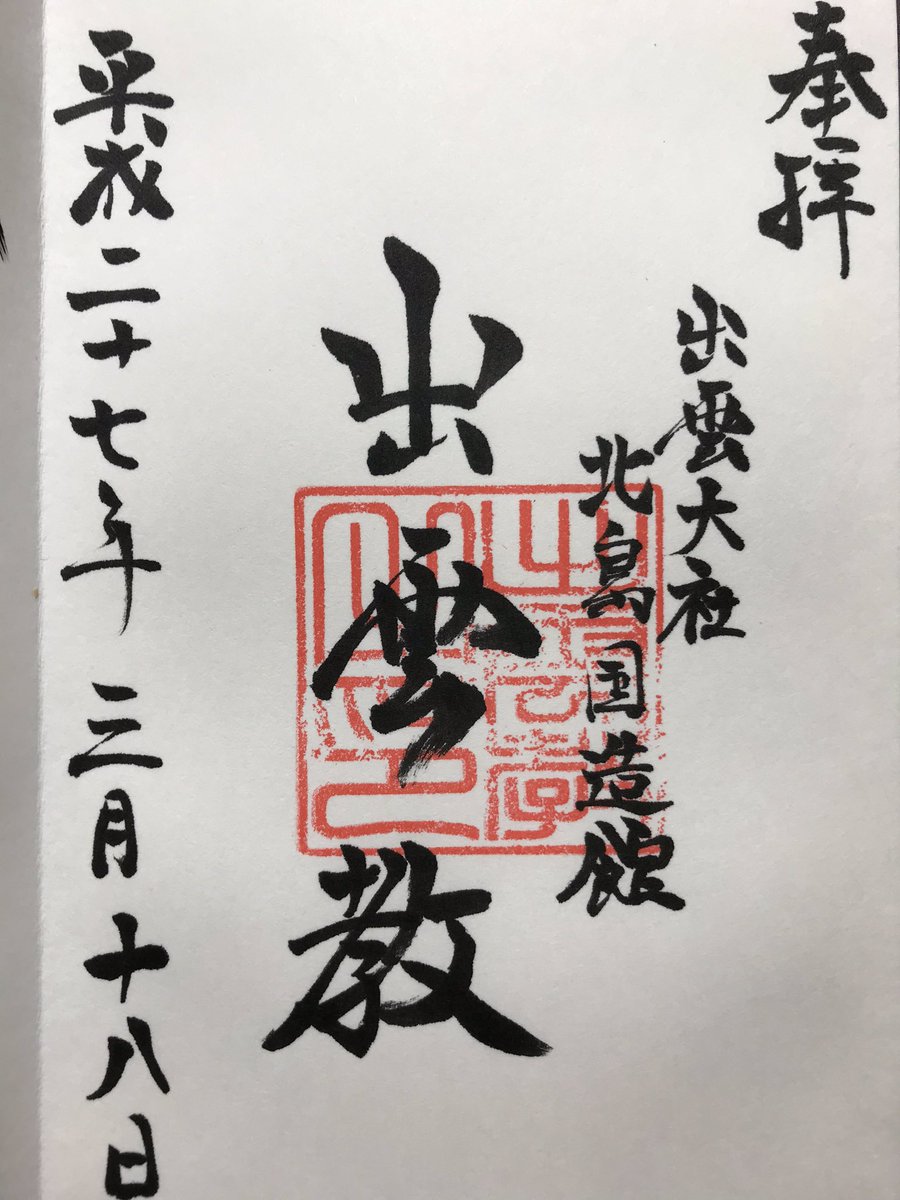 奉拝
出雲大社
北島国造館
出雲教
平成二十七年 三月十八日